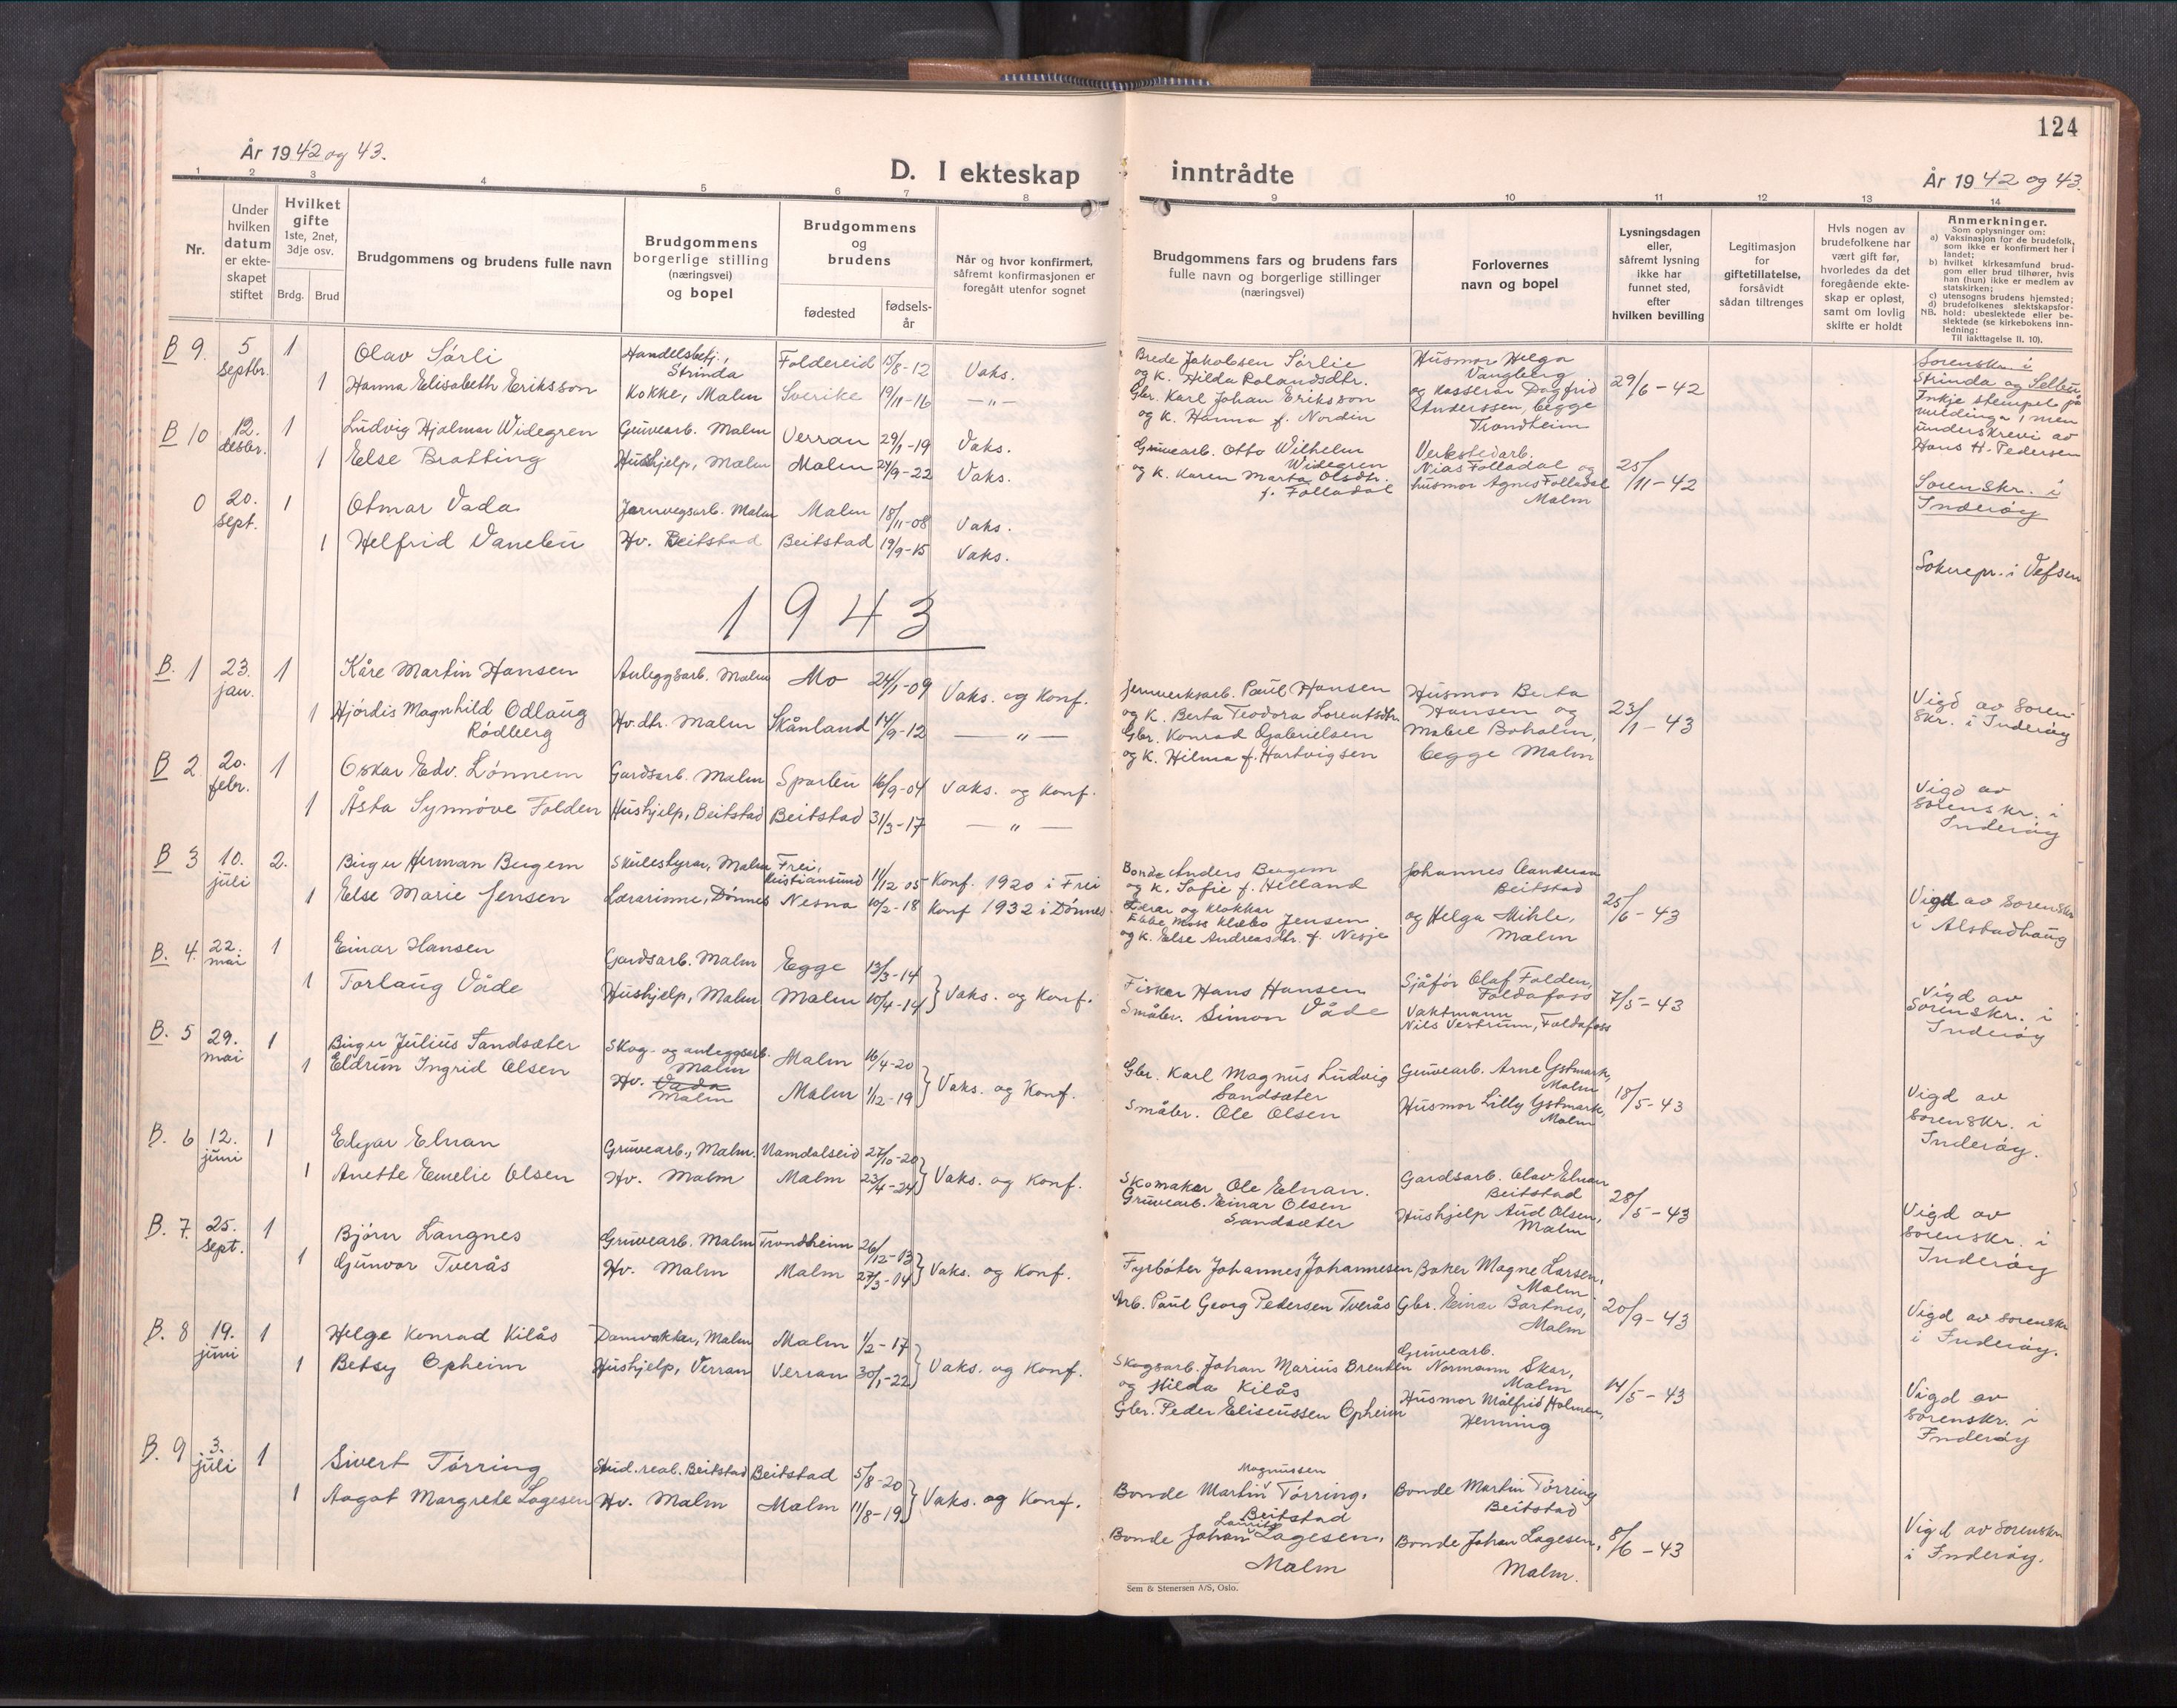 124
År 1942 og 43.
D. I ekteskap inntrådte
År 1942 og 43.
1 2 3 4 5 6 7 8 9 10 11 12 13 14
Nr.
Under hvilken datum er ekte-skapet stiftet
Hvilket gifte
1ste, 2net, 3dje osv.
Brdg. Brud
Brudgommens og brudens fulle navn
Brudgommens borgerlige stilling (næringsvei) og bopel
Brudgommens og brudens
fødested
fødsels-år
Når og hvor konfirmert, såfremt konfirmasjonen er foregått utenfor sognet
Brudgommens fars og brudens fars fulle navn og borgerlige stillinger (næringsvei)
Forlovernes navn og bopel
Lysningsdagen eller, såfremt lysning ikke har funnet sted, efter hvilken bevilling
Legitimasjon for giftetillatelse, forsåvidt sådan tiltrenges
Hvis nogen av brudefolkene har vært gift før, hvorledes da det foregående ekte-skap er opløst, samt om lovlig skifte er holdt
Anmerkninger.
Som oplysninger om:
a) Vaksinasjon for de brudefolk, som ikke er konfirmert her i landet;
b) hvilket kirkesamfund brud-gom eller brud tilhører, hvis han (hun) ikke er medlem av statskirken;
c) utensogns brudens hjemsted;
d) brudefolkenes slektskapsfor-hold: ubeslektede eller be-slektede (se kirkebokens inn-ledning:
NB.
Til iakttagelse II. 10).
B 9. 5 septbr. 1 Olav Sørli Handelsbetj., Strinda Foldereid 15/8-12 Vaks.
1 Hanna Elisabeth Eriksson Kokke, Malm Sverike 19/11-16 —"—
Brede Jakobsen Sørlie
og K. Hilda Rolandsdtr.
Gbr. Karl Johan Eriksson
og K. Hanna f. Nordin
Husmor Helga Vangberg
og kasserar Dagfrid Anderssen, begge Trondheim
29/6-42
Sorenskr. i Strinda og Selbu
Inkje stempel på meldinga, men underskrevi av Hans H. Pedersen
B 10 12. desbr. 1 Ludvig Hjalmar Widegren Gruvearb. Malm Verran 29/1-19 Vaks.
1 Else Bratting Hushjelp, Malm Malm 24/9-22 Vaks.
Gruvearb. Otto Wilhelm Widegren
og K. Karen Marta Olsdtr. f. Folladal
Verkstedarb. Nias Folladal og
husmor Agnes Folladal Malm
25/11-42
Sorenskr. i Inderøy
0 20. sept. 1 Otmar Vada Jarnvegsarb. Malm Malm 18/11-08 Vaks.
1 Helfrid Vanebu Hv. Beitstad Beitstad 19/9-15 Vaks.
Soknepr. i Vefsen
1943
B. 1 23. jan. 1 Kåre Martin Hansen Anleggsarb. Malm Mo 24/1-09 Vaks. og Konf.
1 Hjørdis Magnhild Odlaug Rødberg Hv. dtr. Malm Skånland 14/9-12 — " —
Jernverksarb. Paul Hansen
og K. Berta Teodora Lorentsdtr.
Gbr. Konrad Gabrielsen
og K. Hilma f. Hartvigsen
Husmor Berta Hansen og
Boholm, begge Malm
23/1-43
Vigd av Soren skr. i Inderøy
B 2 20. febr. 1 Oskar Edv. Lønnem Gardsarb. Malm Sparbu 16/9-04 Vaks. og Konf.
1 Åsta Synnøve Folden Hushjelp, Beitstad Beitstad 31/3-17 — " —
Vigd av sorenskr. i Inderøy
B 3 10. juli 2. Birger Herman Bergem Skulestyrar, Malm Frei, Kristiansund 11/12 05 Konf. 1920 i Frei
1 Else Marie Jensen Lærarinne, Dønnes Nesna 10/2-18 Konf 1932 i Dønnes.
Bonde Anders Bergem
og K. Sofie f. Helland
Lærar og klokkar
Ebbe Moss Klæbo Jensen
og K. Else Andreasdtr. f. Nesje
Johannes Aandersa Beitstad
og Helga Mihle, Malm
25/6-43
Vigd av Sorenskr i Alstadhaug
B. 4. 22. mai 1 Einar Hansen Gardsarb. Malm Egge 13/3-14
1 Torlaug Våde Hushjelp, Malm Malm 10/4-14 } Vaks. og Konf.
Fisker Hans Hansen
Småbr. Simon Våde
Sjåfør Olaf Folden, Foldafoss
Vaktmann Nils Vestrum, Foldafoss
7/5-43
Vigd av Sorenskr. i Inderøy
B. 5 29. mai 1 Birger Julius Sandsæter Skog- og anleggsarb. Malm Malm 16/4-20
1 Eldrun Ingrid Olsen Hv. Vada Malm Malm 1/12-19 } Vaks. og Konf.
Gbr. Karl Magnus Ludvig Sandsæter
Småbr. Ole Olsen
Gruvearb. Arne Ystmark, Malm
Husmor Lilly Ystmark, Malm
18/5-43
Vigd av Sorenskr. i Inderøy.
B. 6 12. juni 1 Edgar Elnan Gruvearb., Malm. Namdalseid 27/10-20
1 Anette Emelie Olsen Hv. Malm Malm 23/4-24 } Vaks. og Konf.
Skomaker Ole Elnan.
Gruvearb. Einar Olsen Sandsæter
Gardsarb. Olav Elnan Beitstad
Hushjelp Aud Olsen, Malm
28/5-43
Vigd av sorenskr. i Inderøy
B. 7. 25. sept. 1 Bjørn Langnes Gruvearb. Malm Trondheim 26/12-13
1 Gunvor Tverås Hv. Malm Malm 27/3-14 } Vaks. og Konf.
Fyrbøter Johannes Johannesen
Arb. Paul Georg Pedersen Tverås
Baker Magne Larsen, Malm
Gbr. Einar Bartnes, Malm
20/9-43
Vigd av sorenskr i Inderøy.
B. 8 19. juni 1 Helge Konrad Kilås Damvaktar, Malm Malm 1/2-17
1 Betsy Opheim Hushjelp, Verran Verran 30/1-22 } Vaks. og Konf.
Skogsarb. Johan Marius Brenden
og Hilda Kilås
Gbr. Peder Eliseussen Opheim
Gruvearb. Normann Skar, Malm
Husmor Målfrid Holmen, Henning
14/5-43
Vigd av sorenskr. i Inderøy
B. 9 3. juli 1 Sivert Tørring Stud. real. Beitstad Beitstad 5/8-20
1 Aagot Margrete Lagesen Hv. Malm Malm 11/8-19 } Vaks. og Konf.
Magnussen
Bonde Martin Tørring, Beitstad
Bonde Johan Lagesen, Malm
Bonde Martin Tørring Beitstad
Bonde Johan Lagesen, Malm.
8/6-43
Vigd av sorenskr i Inderøy.
Sem & Stenersen A/S, Oslo.